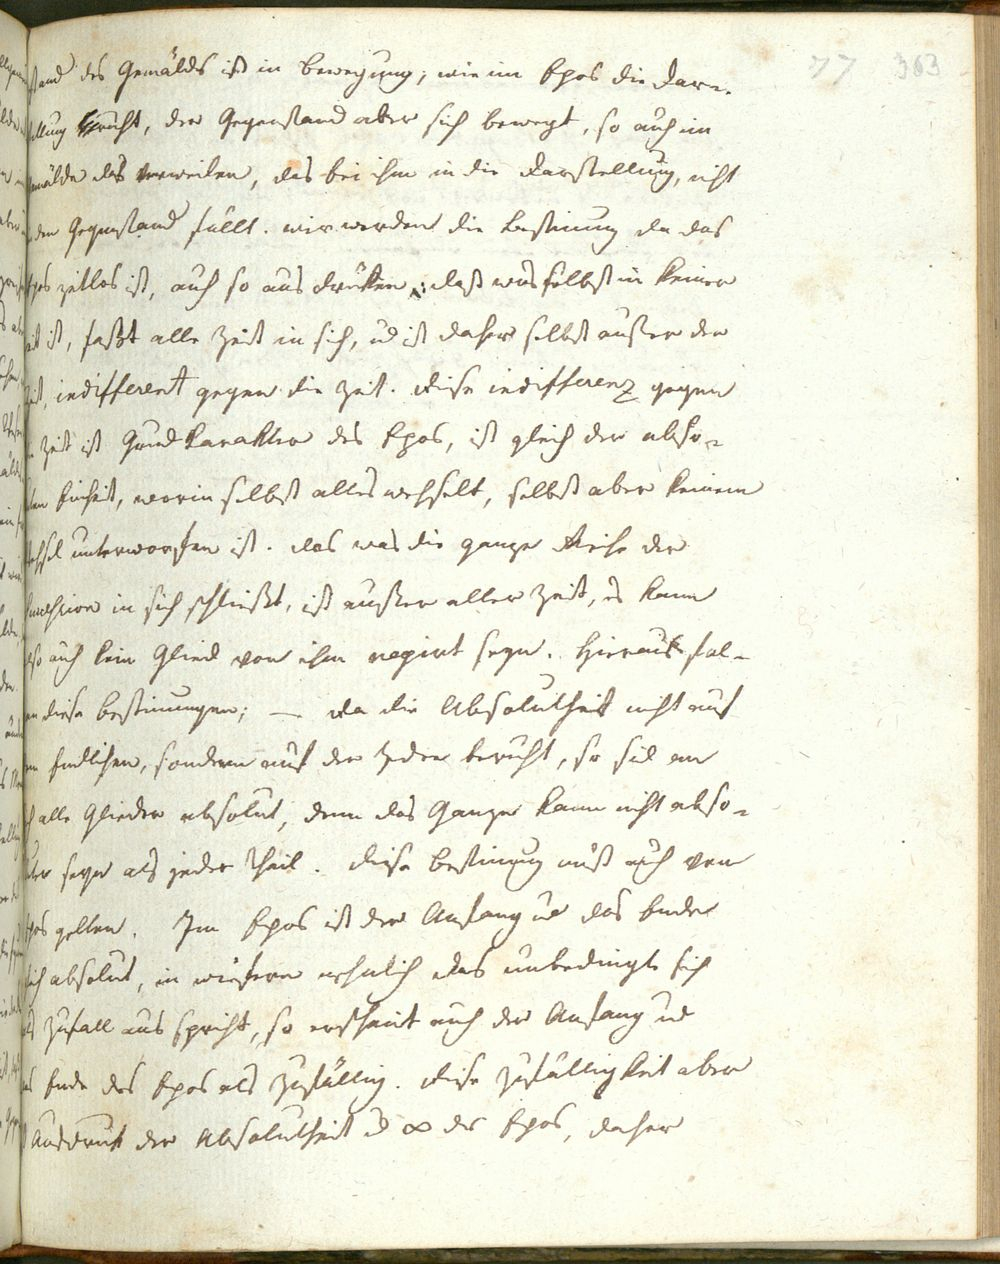 77 363
stand des Gemälds ist in Bewegung, wie im Epos die Dar-
stellung ruht, der Gegenstand aber sich bewegt, so auch im
Gemälde das verweilen, das bei ihm in die Darstellung, nicht
in den Gegenstand fällt. wir werden die Bestimung da das
Epos zeitlos ist, auch so ausdrüken, daß was selbst in keiner
Zeit ist, faßt alle Zeit in sich, ud ist daher selbst außer der
Zeit, indifferent gegen die Zeit. diese indifferenz gegen
die Zeit ist Grundkarakter des Epos, ist gleich der abso-
luten Einheit, worin selbst alles wechselt, selbst aber keinem
Wechsel unterworfen ist. das was die ganze Reihe der
Succession in sich schließt, ist außer aller Zeit, es kann
also auch kein Glied von ihm negirt seyn. Hieraus fol-
gen diese bestimungen; — da die Absolutheit nicht auf
dem Endlichen, sondern auf der Idee beruht, so sid an
sich alle Glieder absolut, denn das Ganze kann nicht abso-
luter seyn als jeder Theil. diese Bestimung muß auch vom
Epos gelten. Im Epos ist der Anfang ud das Ende
gleich absolut, in wiefern nehmlich das unbedingte sich
als Zufall ausspricht, so erscheint auch der Anfang ud
das Ende des Epos als zufällig. diese Zufälligkeit aber
ist Ausdruk der Absolutheit ud ∞ des Epos, daher